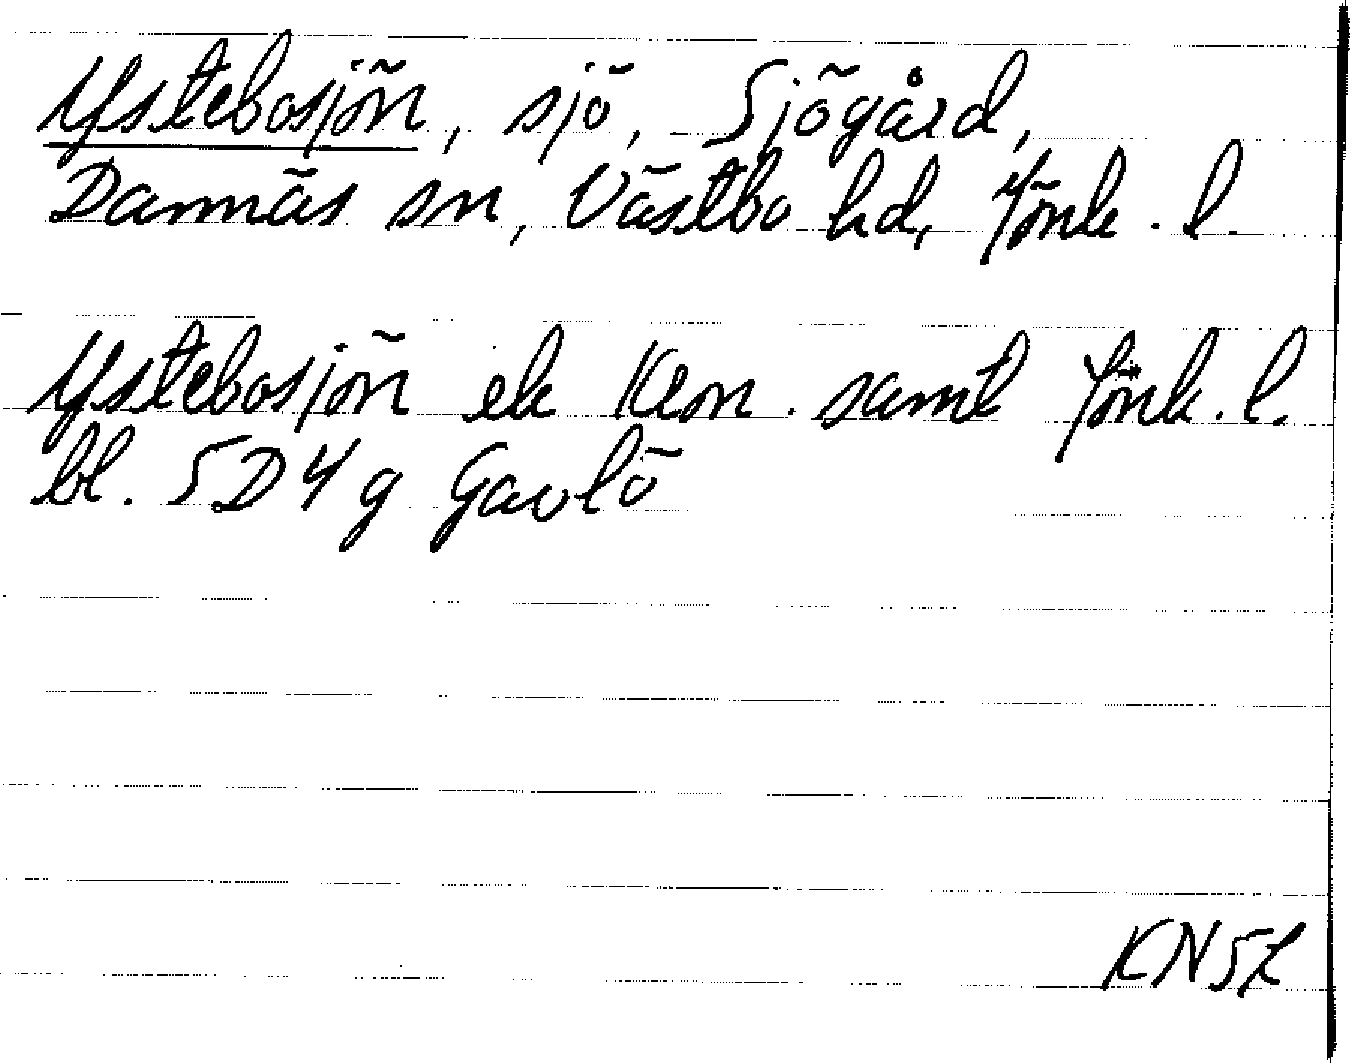 Ystebosjön, sjö, Sjögård,
Dannäs sn, Västbo hd, Jönk. l.
Ystebosjön ek Kem. samt Jönk. l.
bl. 5D 4 g Gavlö
KNSL